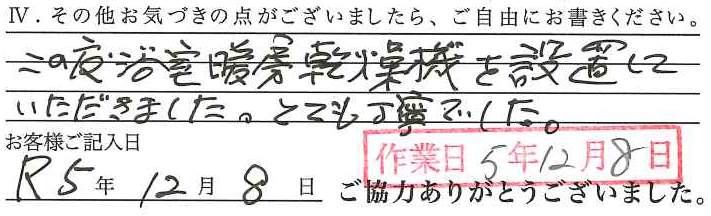 Ⅳ．その他お気づきの点がございましたら、ご自由にお書きください。
この度浴室暖房乾燥機を設置して
いただきました。とても丁寧でした。
お客様ご記入日
R5年12月8日
作業日 5年12月8日
ご協力ありがとうございました。